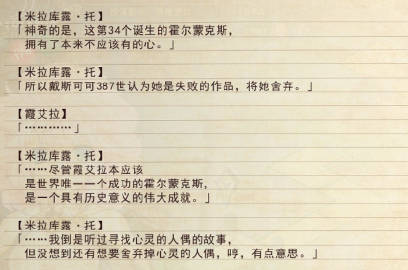 【米拉库露·托】
「神奇的是，这第34个诞生的霍尔蒙克斯，
拥有了本来不应该有的心。」
【米拉库露·托】
「所以戴斯可可387世认为她是失败的作品，将她舍弃。」
【霞艾拉】
「…………」
【米拉库露·托】
「……尽管霞艾拉本应该
是世界唯一一个成功的霍尔蒙克斯，
是一个具有历史意义的伟大成就。」
【米拉库露·托】
「……我倒是听过寻找心灵的人偶的故事，
但没想到还有想要舍弃掉心灵的人偶，哼，有点意思。」